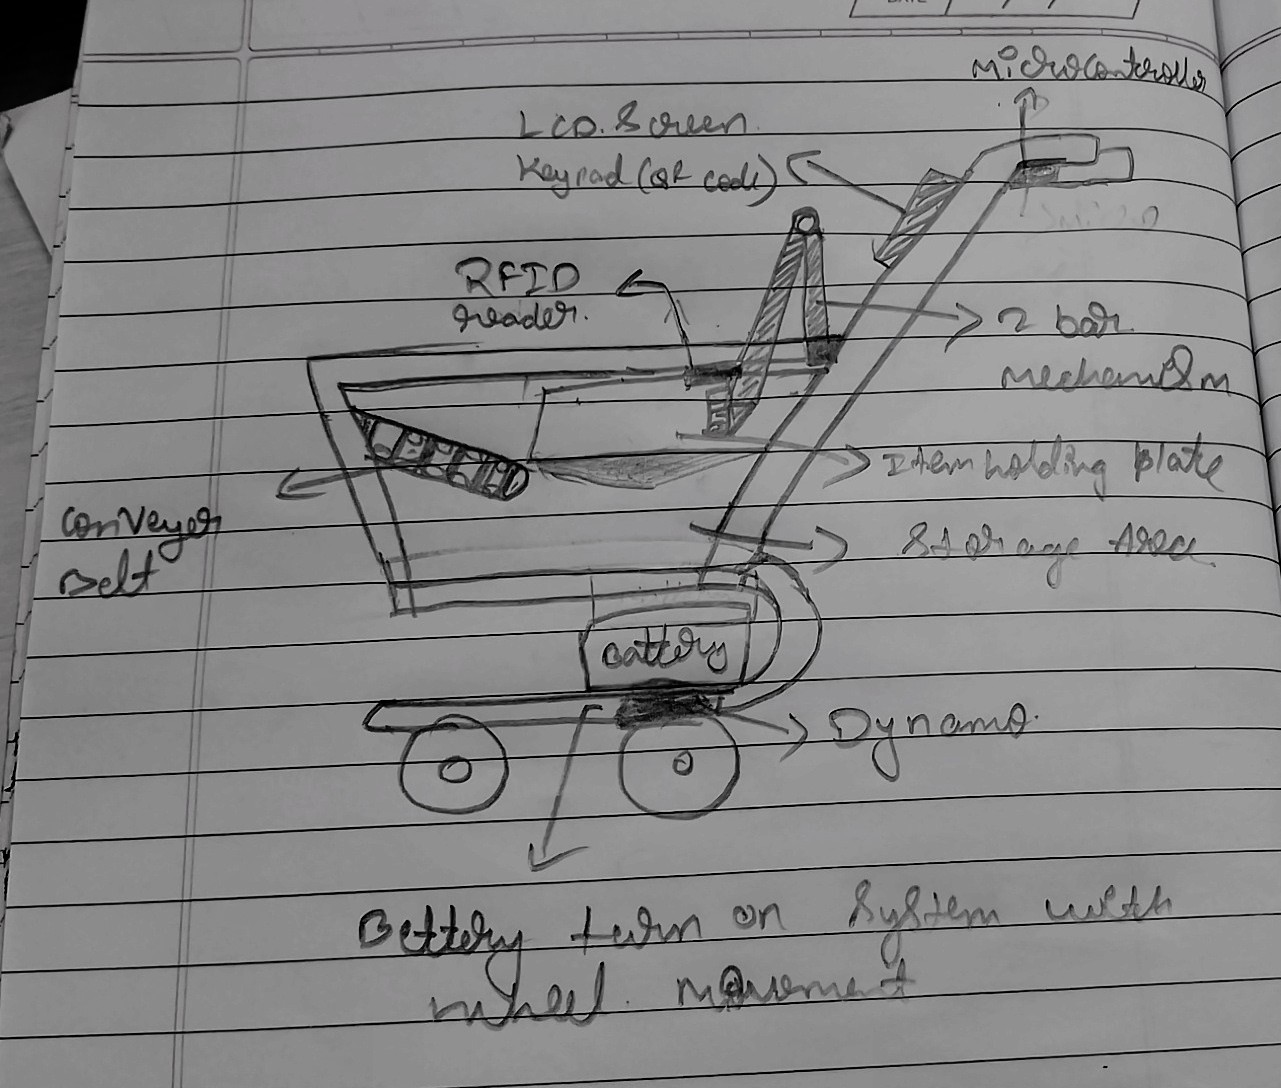 DATE
Microcontroller
LCD. Screen.
Keypad (QR code)
RFID
reader.
2 bar
mechanism
Item holding plate
Conveyer
Belt
Storage Area
Battery
Dynamo.
Bettery turn on system with
wheel. movement